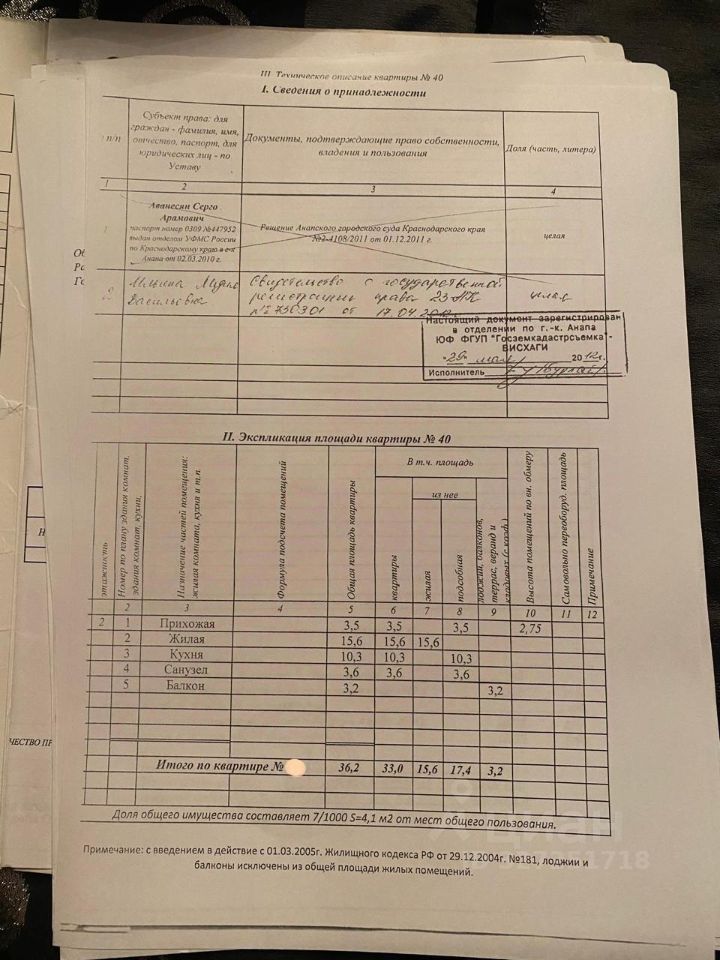 III. Техническое описание квартиры № 40
I. Сведения о принадлежности
п/п
Субъект права: для
граждан - фамилия, имя,
отчество, паспорт, для
юридических лиц - по
Уставу
Документы, подтверждающие право собственности,
владения и пользования
Доля (часть, литера)
1 2 3 4
1
Аванесян Серго
Арамович
паспорт номер 0309 №447952
выдан отделом УФМС России
по Краснодарскому краю в
Анапа от 02.03.2010 г.
Решение Анапского городского суда Краснодарского края
№2-4108/2011 от 01.12.2011 г.
целая
2
Васильевна
Свидетельство о государственной
регистрации права 23-АК
№ 736301 от 17.04.2012г.
целая
Настоящий документ зарегистрирован
в отделении по г.-к. Анапа
ЮФ ФГУП "Госземкадастрсъемка"-
ВИСХАГИ
"29" мая 2012г.
Исполнитель
II. Экспликация площади квартиры № 40
этажность
Номер по плану здания комнат,
здания комнат, кухни,
Назначение частей помещения:
жилая комната, кухня и т.п.
Формула подсчета помещений
Общая площадь квартиры
В т.ч. площадь
квартиры
из нее
жилая
подсобная
лоджий, балконов,
террас, веранд и
кладовых (с коэф.)
Высота помещений по вн. обмеру
Самовольно переоборуд. площадь
Примечание
2 3 4 5 6 7 8 9 10 11 12
2 1 Прихожая 3,5 3,5 3,5 2,75
2 Жилая 15,6 15,6 15,6
3 Кухня 10,3 10,3 10,3
4 Санузел 3,6 3,6 3,6
5 Балкон 3,2 3,2
Итого по квартире № 36,2 33,0 15,6 17,4 3,2
Доля общего имущества составляет 7/1000 S=4,1 м2 от мест общего пользования.
Примечание: с введением в действие с 01.03.2005г. Жилищного кодекса РФ от 29.12.2004г. №181, лоджии и
балконы исключены из общей площади жилых помещений.